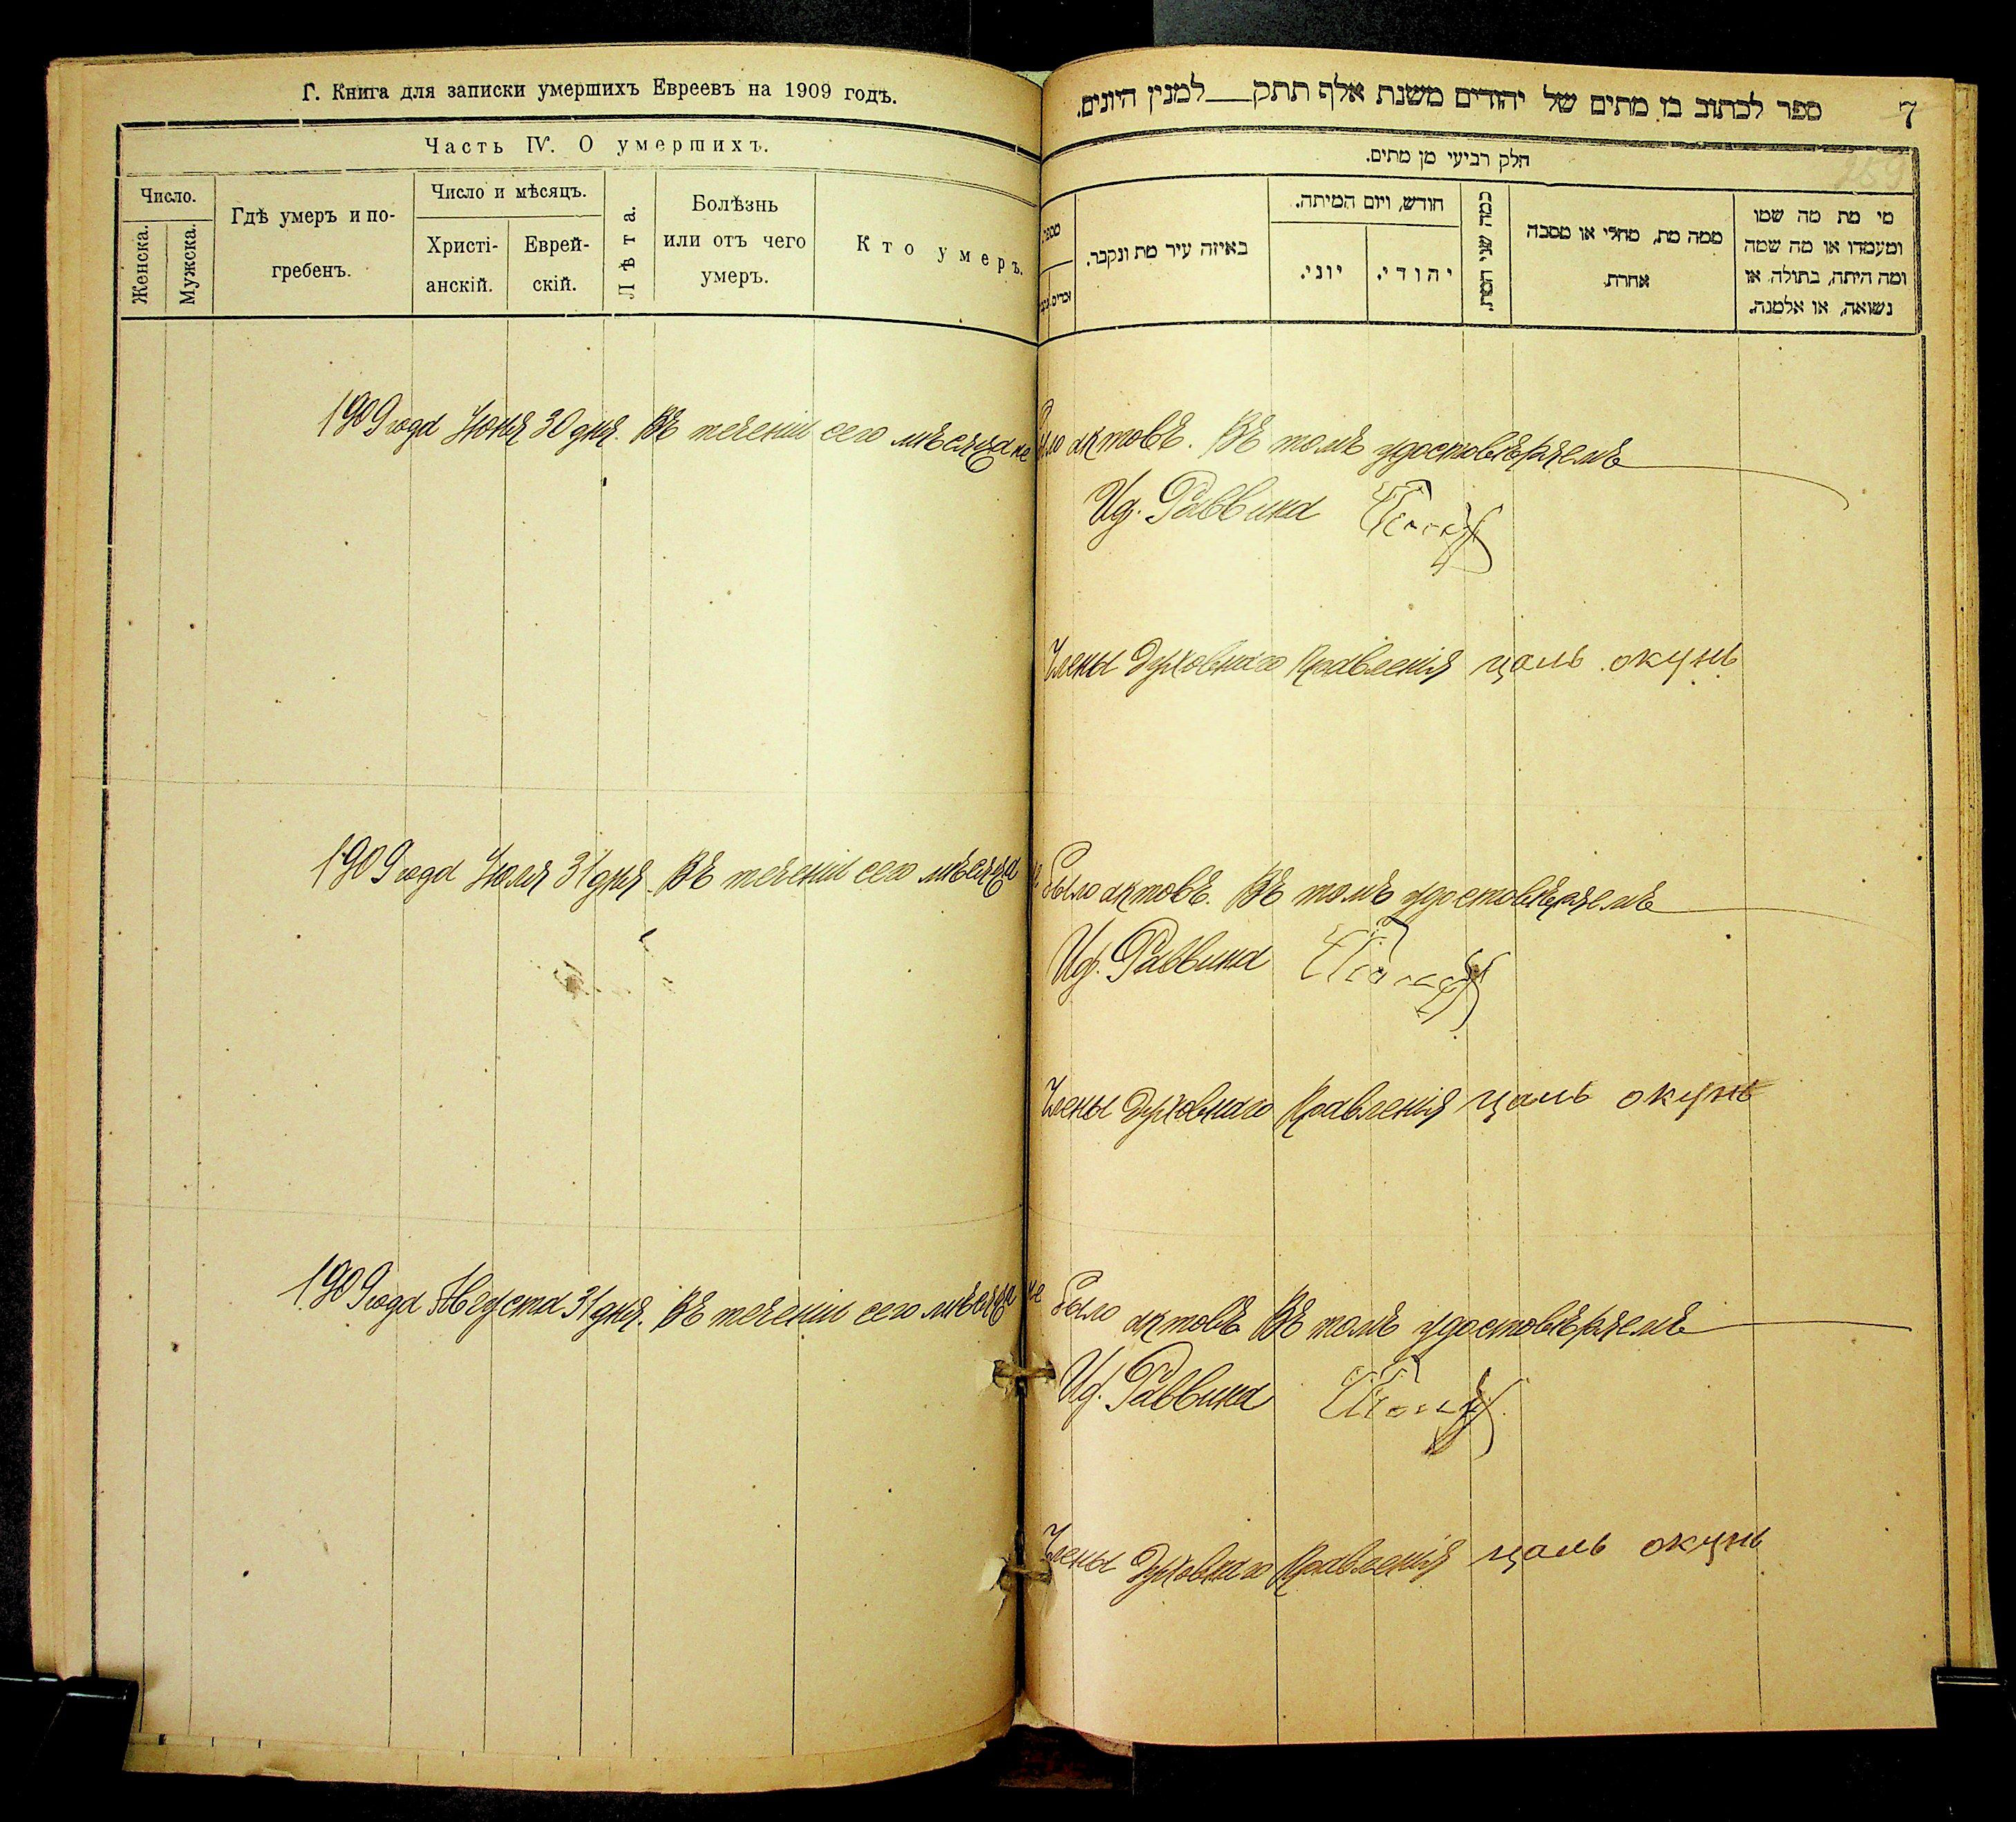 Г. Книга для записки умершихъ Евреевъ на 1909 годъ.
Часть IV. О умершихъ.
Число.
Женска.
Мужска.
Гдѣ умеръ и по-
гребенъ.
Число и мѣсяцъ.
Христі-
анскій.
Еврей-
скій.
Лѣта.
Болѣзнь
или отъ чего
умеръ.
Кто умеръ.
1909 года Іюня 30 дня. Въ теченіи сего мѣсяца не
1909 года Іюля 31 дня. Въ теченіи сего мѣсяца
1909 года Августа 31 дня. Въ теченіи сего мѣсяца не
ספר לכתוב בו מתים של יהודים משנת אלף תתק___למנין היונים.
7
259
חלק רביעי מן מתים.
באיזה עיר מת ונקבר.
חודש, ויום המיתה.
יוני.
יהודי.
כמה שני המת.
ממה מת, מחלי או מסבה
אחרת
מי מת מה שמו
ומעמדו או מה שמה
ומה היתה, בתולה או
נשואה, או אלמנה.
было актовъ. Въ томъ удостовѣряемъ
Ид. Раввина
Члены Духовнаго Правленія цаль окунь
было актовъ. Въ томъ удостовѣряемъ
Ид. Раввина
Члены Духовнаго Правленія цаль окунь
было актовъ Въ томъ удостовѣряемъ
Ид. Раввина
Члены Духовнаго Правленія цаль окунь